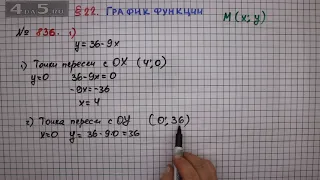 4 НА 5.RU
§22. ГРАФИК ФУНКЦИИ
M (x; y)
№ 836. 1)
y = 36 - 9x
1) Точки пересеч с OX (4; 0)
y=0 36 - 9x = 0
-9x = -36
x = 4
2) Точка пересеч с OY (0; 36)
x=0 y = 36 - 9·0 = 36